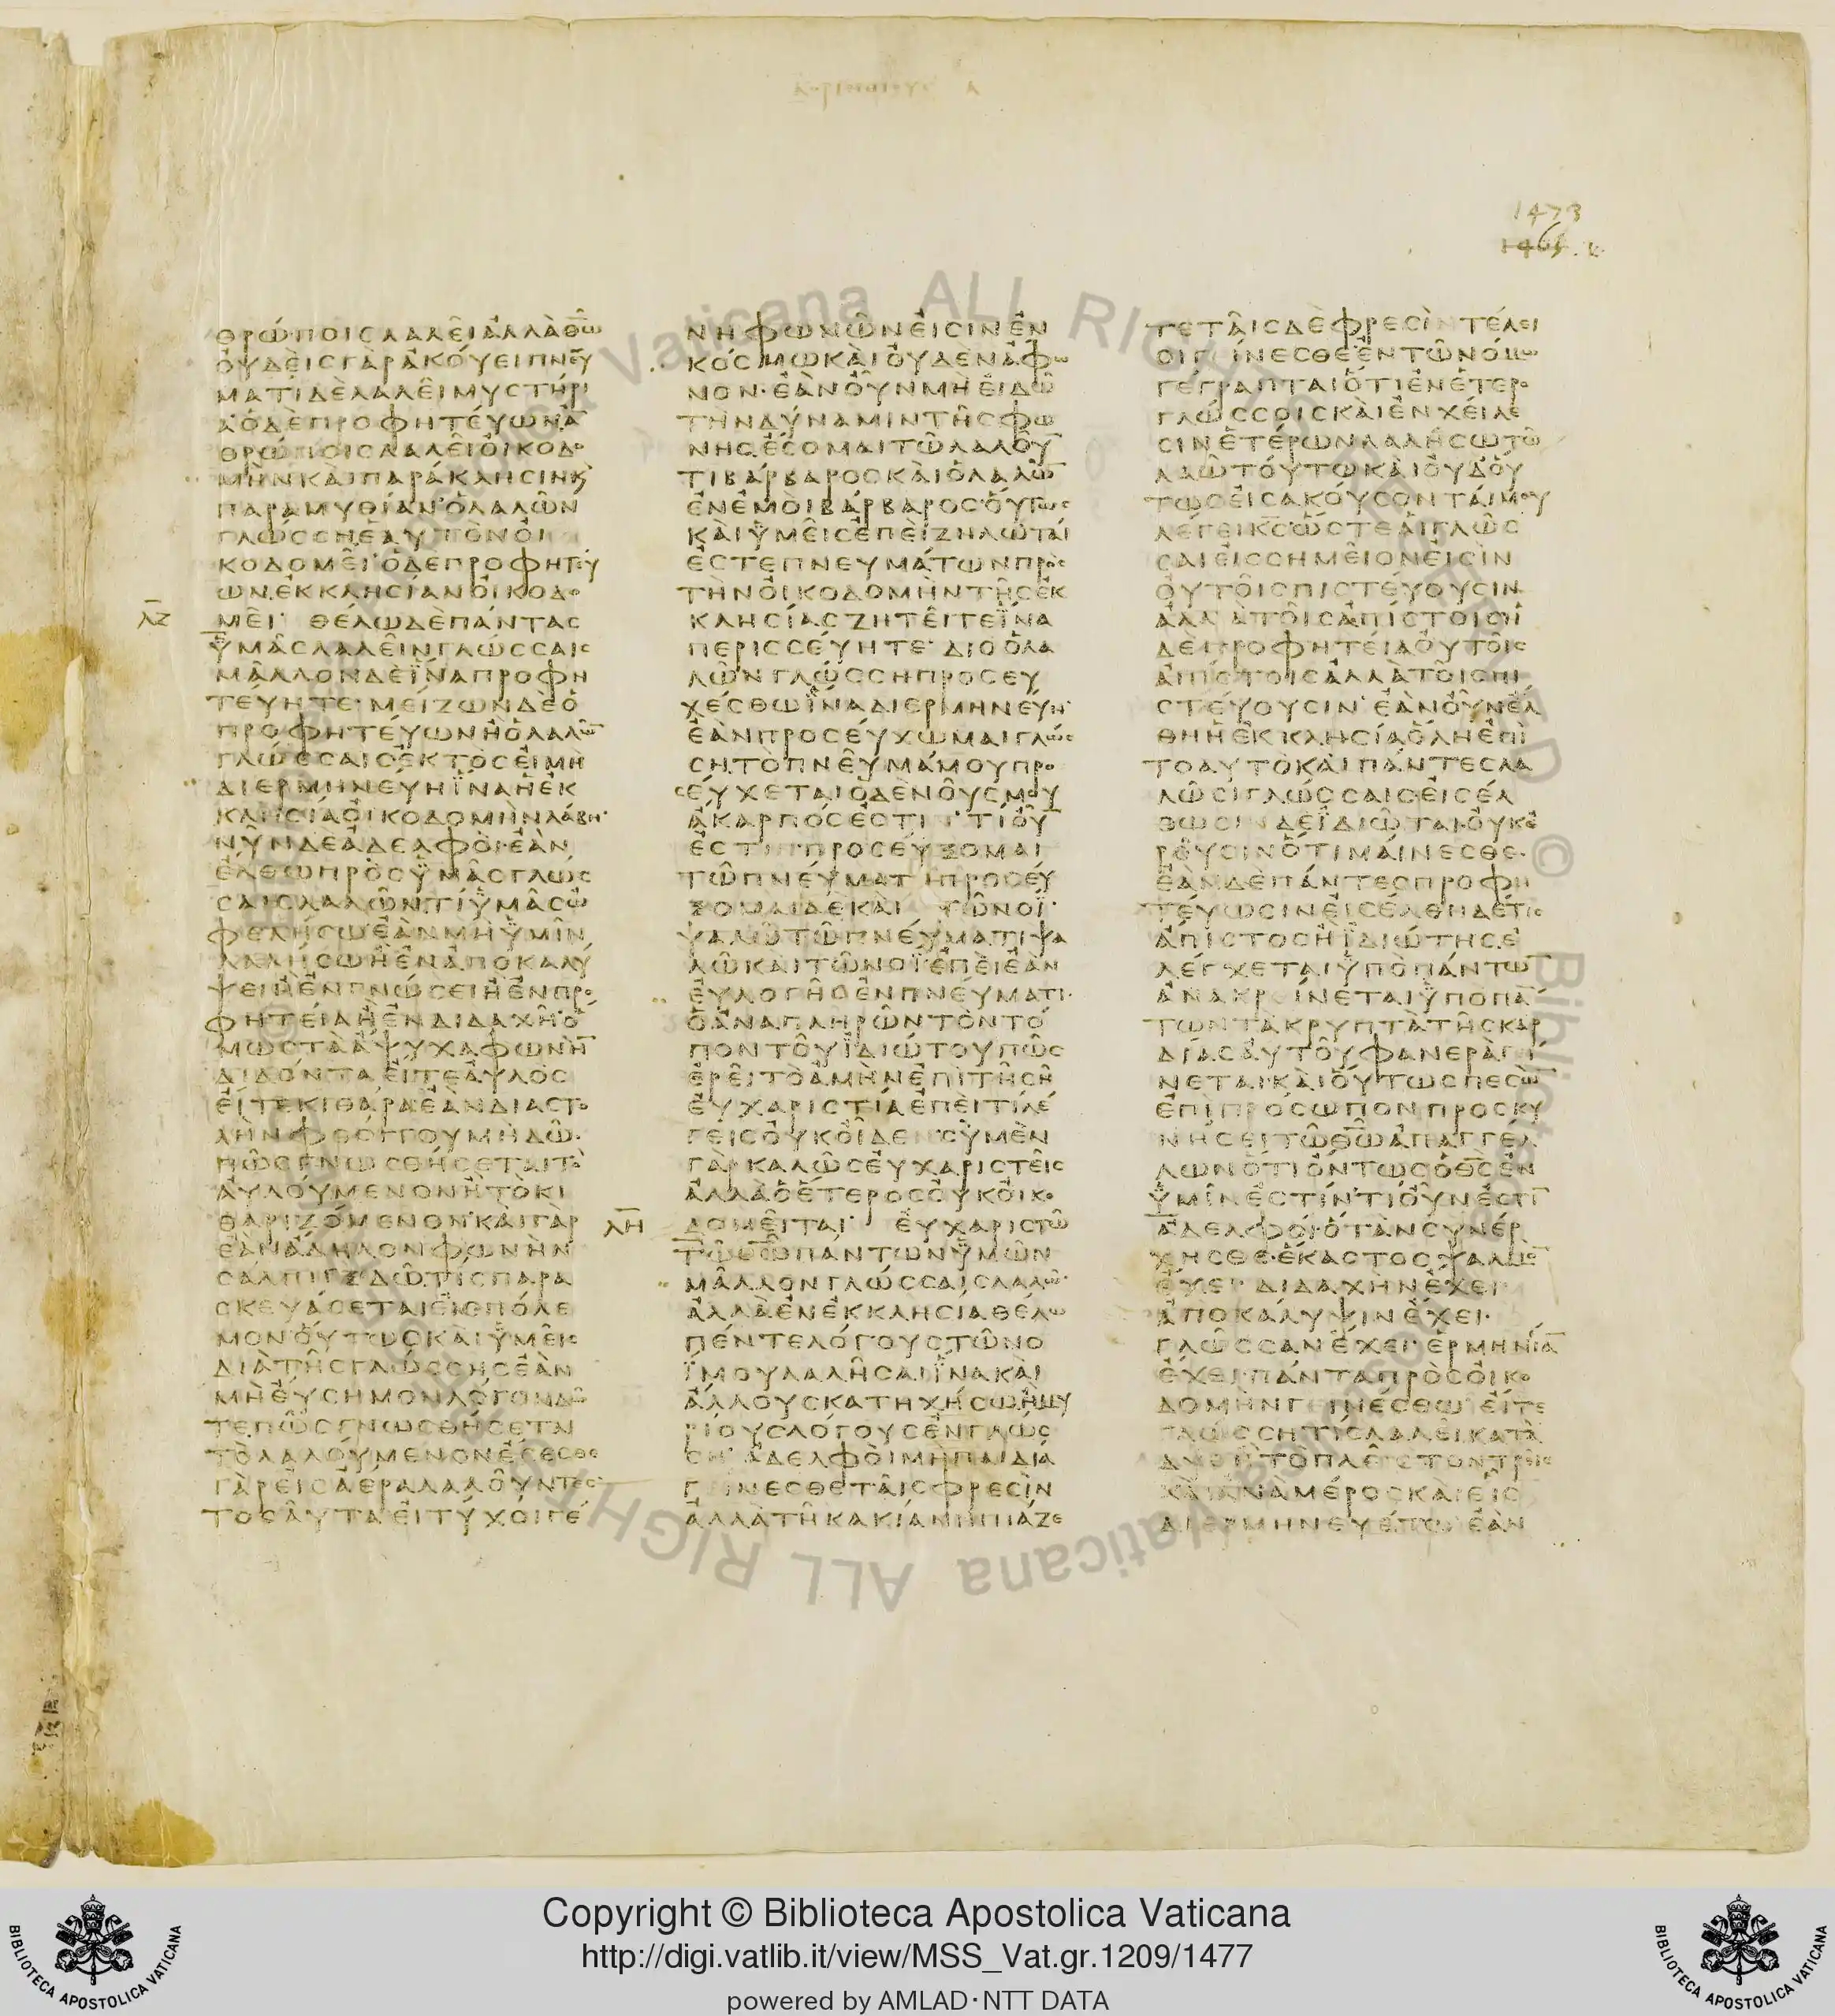 1473
ΘΡΩΠΟΙΣ ΛΑΛΕΙ ΑΛΛΑ ΘΩ
ΟΥΔΕΙΣ ΓΑΡ ΑΚΟΥΕΙ ΠΝΕΥ
ΜΑΤΙ ΔΕ ΛΑΛΕΙ ΜΥΣΤΗΡΙ
Α Ο ΔΕ ΠΡΟΦΗΤΕΥΩΝ Α̅
ΘΡΩΠΟΙΣ ΛΑΛΕΙ ΟΙΚΟΔΟ
ΜΗΝ ΚΑΙ ΠΑΡΑΚΛΗΣΙΝ Κ
ΠΑΡΑΜΥΘΙΑΝ Ο ΛΑΛΩΝ
ΓΛΩΣΣΗ ΕΑΥΤΟΝ ΟΙ
ΚΟΔΟΜΕΙ Ο ΔΕ ΠΡΟΦΗΤΕΥ
ΩΝ ΕΚΚΛΗΣΙΑΝ ΟΙΚΟΔΟ
ΛΖ ΜΕΙ ΘΕΛΩ ΔΕ ΠΑΝΤΑΣ
ΥΜΑΣ ΛΑΛΕΙΝ ΓΛΩΣΣΑΙΣ
ΜΑΛΛΟΝ ΔΕ ΙΝΑ ΠΡΟΦΗ
ΤΕΥΗΤΕ ΜΕΙΖΩΝ ΔΕ Ο
ΠΡΟΦΗΤΕΥΩΝ Η Ο ΛΑΛΩ̅
ΓΛΩΣΣΑΙΣ ΕΚΤΟΣ ΕΙ ΜΗ
ΔΙΕΡΜΗΝΕΥΗ ΙΝΑ Η ΕΚ
ΚΛΗΣΙΑ ΟΙΚΟΔΟΜΗΝ ΛΑΒΗ
ΝΥΝ ΔΕ ΑΔΕΛΦΟΙ ΕΑΝ
ΕΛΘΩ ΠΡΟΣ ΥΜΑΣ ΓΛΩΣ
ΣΑΙΣ ΛΑΛΩΝ ΤΙ ΥΜΑΣ Ω
ΦΕΛΗΣΩ ΕΑΝ ΜΗ ΥΜΙΝ
ΛΑΛΗΣΩ Η ΕΝ ΑΠΟΚΑΛΥ
ΨΕΙ Η ΕΝ ΓΝΩΣΕΙ Η ΕΝ ΠΡΟ
ΦΗΤΕΙΑ Η ΕΝ ΔΙΔΑΧΗ Ο
ΜΩΣ ΤΑ ΑΨΥΧΑ ΦΩΝΗ̅
ΔΙΔΟΝΤΑ ΕΙΤΕ ΑΥΛΟΣ
ΕΙΤΕ ΚΙΘΑΡΑ ΕΑΝ ΔΙΑΣΤΟ
ΛΗΝ ΦΘΟΓΓΟΥ ΜΗ ΔΩ
ΠΩΣ ΓΝΩΣΘΗΣΕΤΑΙ ΤΟ
ΑΥΛΟΥΜΕΝΟΝ Η ΤΟ ΚΙ
ΘΑΡΙΖΟΜΕΝΟΝ ΚΑΙ ΓΑΡ
ΕΑΝ ΑΔΗΛΟΝ ΦΩΝΗΝ
ΣΑΛΠΙΓΞ ΔΩ ΤΙΣ ΠΑΡΑ
ΣΚΕΥΑΣΕΤΑΙ ΕΙΣ ΠΟΛΕ
ΜΟΝ ΟΥΤΩΣ ΚΑΙ ΥΜΕΙΣ
ΔΙΑ ΤΗΣ ΓΛΩΣΣΗΣ ΕΑΝ
ΜΗ ΕΥΣΗΜΟΝ ΛΟΓΟΝ ΔΩ
ΤΕ ΠΩΣ ΓΝΩΣΘΗΣΕΤΑΙ
ΤΟ ΛΑΛΟΥΜΕΝΟΝ ΕΣΕΣΘΕ
ΓΑΡ ΕΙΣ ΑΕΡΑ ΛΑΛΟΥΝΤΕΣ
ΤΟΣΑΥΤΑ ΕΙ ΤΥΧΟΙ ΓΕ
ΝΗ ΦΩΝΩΝ ΕΙΣΙΝ ΕΝ
ΚΟΣΜΩ ΚΑΙ ΟΥΔΕΝ ΑΦΩ
ΝΟΝ ΕΑΝ ΟΥΝ ΜΗ ΕΙΔΩ
ΤΗΝ ΔΥΝΑΜΙΝ ΤΗΣ ΦΩ
ΝΗΣ ΕΣΟΜΑΙ ΤΩ ΛΑΛΟΥ̅
ΤΙ ΒΑΡΒΑΡΟΣ ΚΑΙ Ο ΛΑΛΩ̅
ΕΝ ΕΜΟΙ ΒΑΡΒΑΡΟΣ ΟΥΤΩΣ
ΚΑΙ ΥΜΕΙΣ ΕΠΕΙ ΖΗΛΩΤΑΙ
ΕΣΤΕ ΠΝΕΥΜΑΤΩΝ ΠΡΟΣ
ΤΗΝ ΟΙΚΟΔΟΜΗΝ ΤΗΣ ΕΚ
ΚΛΗΣΙΑΣ ΖΗΤΕΙΤΕ ΙΝΑ
ΠΕΡΙΣΣΕΥΗΤΕ ΔΙΟ Ο ΛΑ
ΛΩΝ ΓΛΩΣΣΗ ΠΡΟΣΕΥ
ΧΕΣΘΩ ΙΝΑ ΔΙΕΡΜΗΝΕΥΗ
ΕΑΝ ΠΡΟΣΕΥΧΩΜΑΙ ΓΛΩΣ
ΣΗ ΤΟ ΠΝΕΥΜΑ ΜΟΥ ΠΡΟ
ΣΕΥΧΕΤΑΙ Ο ΔΕ ΝΟΥΣ ΜΟΥ
ΑΚΑΡΠΟΣ ΕΣΤΙΝ ΤΙ ΟΥ̅
ΕΣΤΙΝ ΠΡΟΣΕΥΞΟΜΑΙ
ΤΩ ΠΝΕΥΜΑΤΙ ΠΡΟΣΕΥ
ΞΟΜΑΙ ΔΕ ΚΑΙ ΤΩ ΝΟΙ
ΨΑΛΩ ΤΩ ΠΝΕΥΜΑΤΙ ΨΑ
ΛΩ ΚΑΙ ΤΩ ΝΟΙ ΕΠΕΙ ΕΑΝ
ΕΥΛΟΓΗΣ ΕΝ ΠΝΕΥΜΑΤΙ
Ο ΑΝΑΠΛΗΡΩΝ ΤΟΝ ΤΟ
ΠΟΝ ΤΟΥ ΙΔΙΩΤΟΥ ΠΩΣ
ΕΡΕΙ ΤΟ ΑΜΗΝ ΕΠΙ ΤΗ ΣΗ
ΕΥΧΑΡΙΣΤΙΑ ΕΠΕΙ ΤΙ ΛΕ
ΓΕΙΣ ΟΥΚ ΟΙΔΕΝ ΣΥ ΜΕΝ
ΓΑΡ ΚΑΛΩΣ ΕΥΧΑΡΙΣΤΕΙΣ
ΑΛΛΑ Ο ΕΤΕΡΟΣ ΟΥΚ ΟΙΚΟ
ΛΗ ΔΟΜΕΙΤΑΙ ΕΥΧΑΡΙΣΤΩ
ΤΩ ΘΩ ΠΑΝΤΩΝ ΥΜΩΝ
ΜΑΛΛΟΝ ΓΛΩΣΣΑΙΣ ΛΑΛΩ
ΑΛΛΑ ΕΝ ΕΚΚΛΗΣΙΑ ΘΕΛΩ
ΠΕΝΤΕ ΛΟΓΟΥΣ ΤΩ ΝΟ
Ι ΜΟΥ ΛΑΛΗΣΑΙ ΙΝΑ ΚΑΙ
ΑΛΛΟΥΣ ΚΑΤΗΧΗΣΩ Η ΜΥ
ΡΙΟΥΣ ΛΟΓΟΥΣ ΕΝ ΓΛΩΣ
ΣΗ ΑΔΕΛΦΟΙ ΜΗ ΠΑΙΔΙΑ
ΓΕΙΝΕΣΘΕ ΤΑΙΣ ΦΡΕΣΙΝ
ΑΛΛΑ ΤΗ ΚΑΚΙΑ ΝΗΠΙΑΖΕ
ΤΕ ΤΑΙΣ ΔΕ ΦΡΕΣΙΝ ΤΕΛΕΙ
ΟΙ ΓΕΙΝΕΣΘΕ ΕΝ ΤΩ ΝΟΜΩ
ΓΕΓΡΑΠΤΑΙ ΟΤΙ ΕΝ ΕΤΕΡΟ
ΓΛΩΣΣΟΙΣ ΚΑΙ ΕΝ ΧΕΙΛΕ
ΣΙΝ ΕΤΕΡΩΝ ΛΑΛΗΣΩ ΤΩ
ΛΑΩ ΤΟΥΤΩ ΚΑΙ ΟΥΔ ΟΥ
ΤΩΣ ΕΙΣΑΚΟΥΣΟΝΤΑΙ ΜΟΥ
ΛΕΓΕΙ ΚΣ ΩΣΤΕ ΑΙ ΓΛΩΣ
ΣΑΙ ΕΙΣ ΣΗΜΕΙΟΝ ΕΙΣΙΝ
ΟΥ ΤΟΙΣ ΠΙΣΤΕΥΟΥΣΙΝ
ΑΛΛΑ ΤΟΙΣ ΑΠΙΣΤΟΙΣ Η
ΔΕ ΠΡΟΦΗΤΕΙΑ ΟΥ ΤΟΙΣ
ΑΠΙΣΤΟΙΣ ΑΛΛΑ ΤΟΙΣ ΠΙ
ΣΤΕΥΟΥΣΙΝ ΕΑΝ ΟΥΝ ΕΛ
ΘΗ Η ΕΚΚΛΗΣΙΑ ΟΛΗ ΕΠΙ
ΤΟ ΑΥΤΟ ΚΑΙ ΠΑΝΤΕΣ ΛΑ
ΛΩΣΙ ΓΛΩΣΣΑΙΣ ΕΙΣΕΛ
ΘΩΣΙΝ ΔΕ ΙΔΙΩΤΑΙ ΟΥΚ Ε
ΡΟΥΣΙΝ ΟΤΙ ΜΑΙΝΕΣΘΕ
ΕΑΝ ΔΕ ΠΑΝΤΕΣ ΠΡΟΦΗ
ΤΕΥΩΣΙΝ ΕΙΣΕΛΘΗ ΔΕ ΤΙΣ
ΑΠΙΣΤΟΣ Η ΙΔΙΩΤΗΣ Ε
ΛΕΓΧΕΤΑΙ ΥΠΟ ΠΑΝΤΩ̅
ΑΝΑΚΡΕΙΝΕΤΑΙ ΥΠΟ ΠΑ̅
ΤΩΝ ΤΑ ΚΡΥΠΤΑ ΤΗΣ ΚΑΡ
ΔΙΑΣ ΑΥΤΟΥ ΦΑΝΕΡΑ ΓΕΙ
ΝΕΤΑΙ ΚΑΙ ΟΥΤΩΣ ΠΕΣΩ̅
ΕΠΙ ΠΡΟΣΩΠΟΝ ΠΡΟΣΚΥ
ΝΗΣΕΙ ΤΩ ΘΩ ΑΠΑΓΓΕΛ
ΛΩΝ ΟΤΙ ΟΝΤΩΣ Ο ΘΣ ΕΝ
ΥΜΙΝ ΕΣΤΙΝ ΤΙ ΟΥΝ ΕΣΤΙ̅
ΑΔΕΛΦΟΙ ΟΤΑΝ ΣΥΝΕΡ
ΧΗΣΘΕ ΕΚΑΣΤΟΣ ΨΑΛΜΟ̅
ΕΧΕΙ ΔΙΔΑΧΗΝ ΕΧΕΙ
ΑΠΟΚΑΛΥΨΙΝ ΕΧΕΙ
ΓΛΩΣΣΑΝ ΕΧΕΙ ΕΡΜΗΝΙΑ̅
ΕΧΕΙ ΠΑΝΤΑ ΠΡΟΣ ΟΙΚΟ
ΔΟΜΗΝ ΓΕΙΝΕΣΘΩ ΕΙΤΕ
ΓΛΩΣΣΗ ΤΙΣ ΛΑΛΕΙ ΚΑΤΑ
ΔΥΟ Η ΤΟ ΠΛΕΙΣΤΟΝ ΤΡΕΙΣ
ΚΑΙ ΑΝΑ ΜΕΡΟΣ ΚΑΙ ΕΙΣ
ΔΙΕΡΜΗΝΕΥΕΤΩ ΕΑΝ
Copyright © Biblioteca Apostolica Vaticana
http://digi.vatlib.it/view/MSS_Vat.gr.1209/1477
powered by AMLAD·NTT DATA
BIBLIOTECA APOSTOLICA VATICANA
BIBLIOTECA APOSTOLICA VATICANA